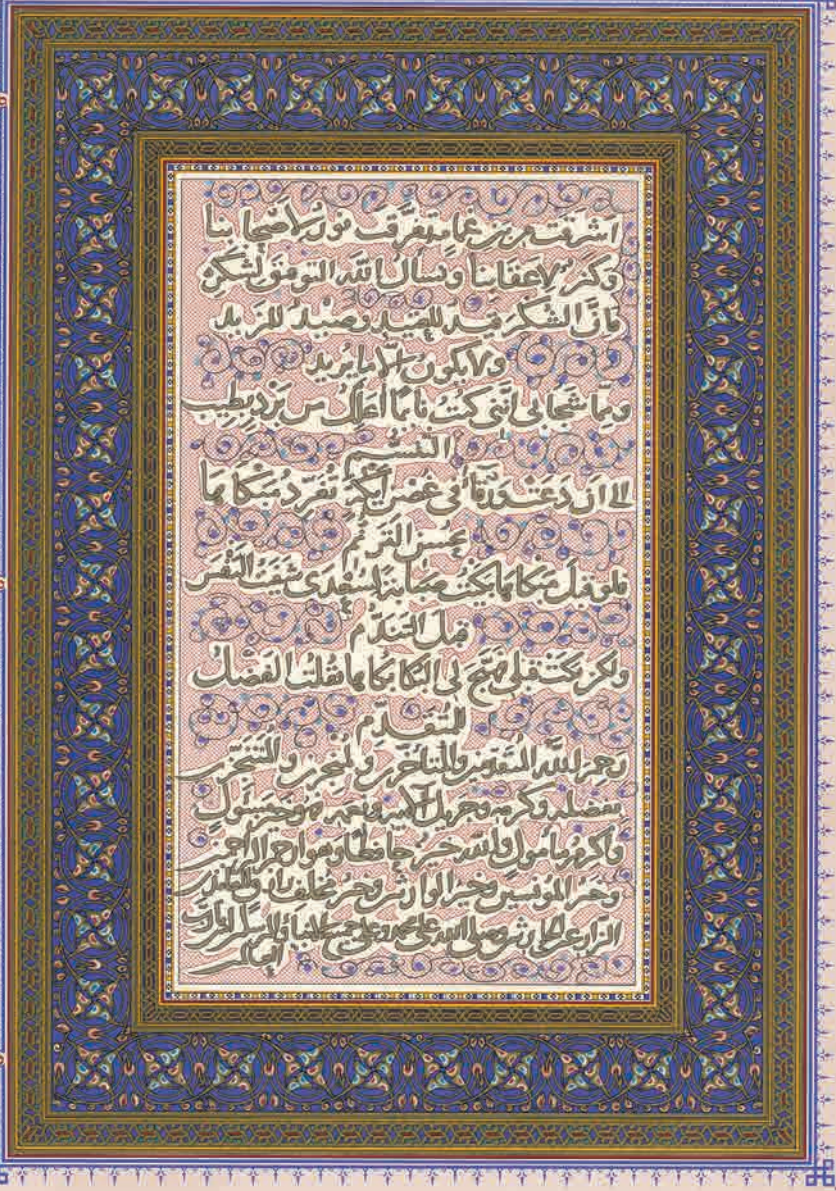 اشرقت من بين غمام متفرقة نور لاصحابنا
وكنز لاعقابنا ونسال الله التوفيق لشكره
فان الشكر قيد للعتيد وصيد للمزيد
ولا يكون الا ما يريد
ومما شجاني انني كنت نائما اعلل من برد بطيب
التنسم
الى ان دعت ورقاء في غصن ايكة تغرد مبكاها
بحسن الترنم
فلو قبل مبكاها بكيت صبابة بسعدى شفيت النفس
قبل التندم
ولكن بكت قبلي فهيج لي البكا بكاها فقلت الفضل
للمتقدم
رحم الله المتقدمين والمتاخرين والمنجزين والمتنجزين
بفضله وكرمه وجزيل وهو خير مسئول
واكرم مامول والله خير حافظا وهو ارحم الراحمين
وخير المونسين وخير الوارثين وخير مخلف
وصلى الله على محمد وعلى جميع
العالمين